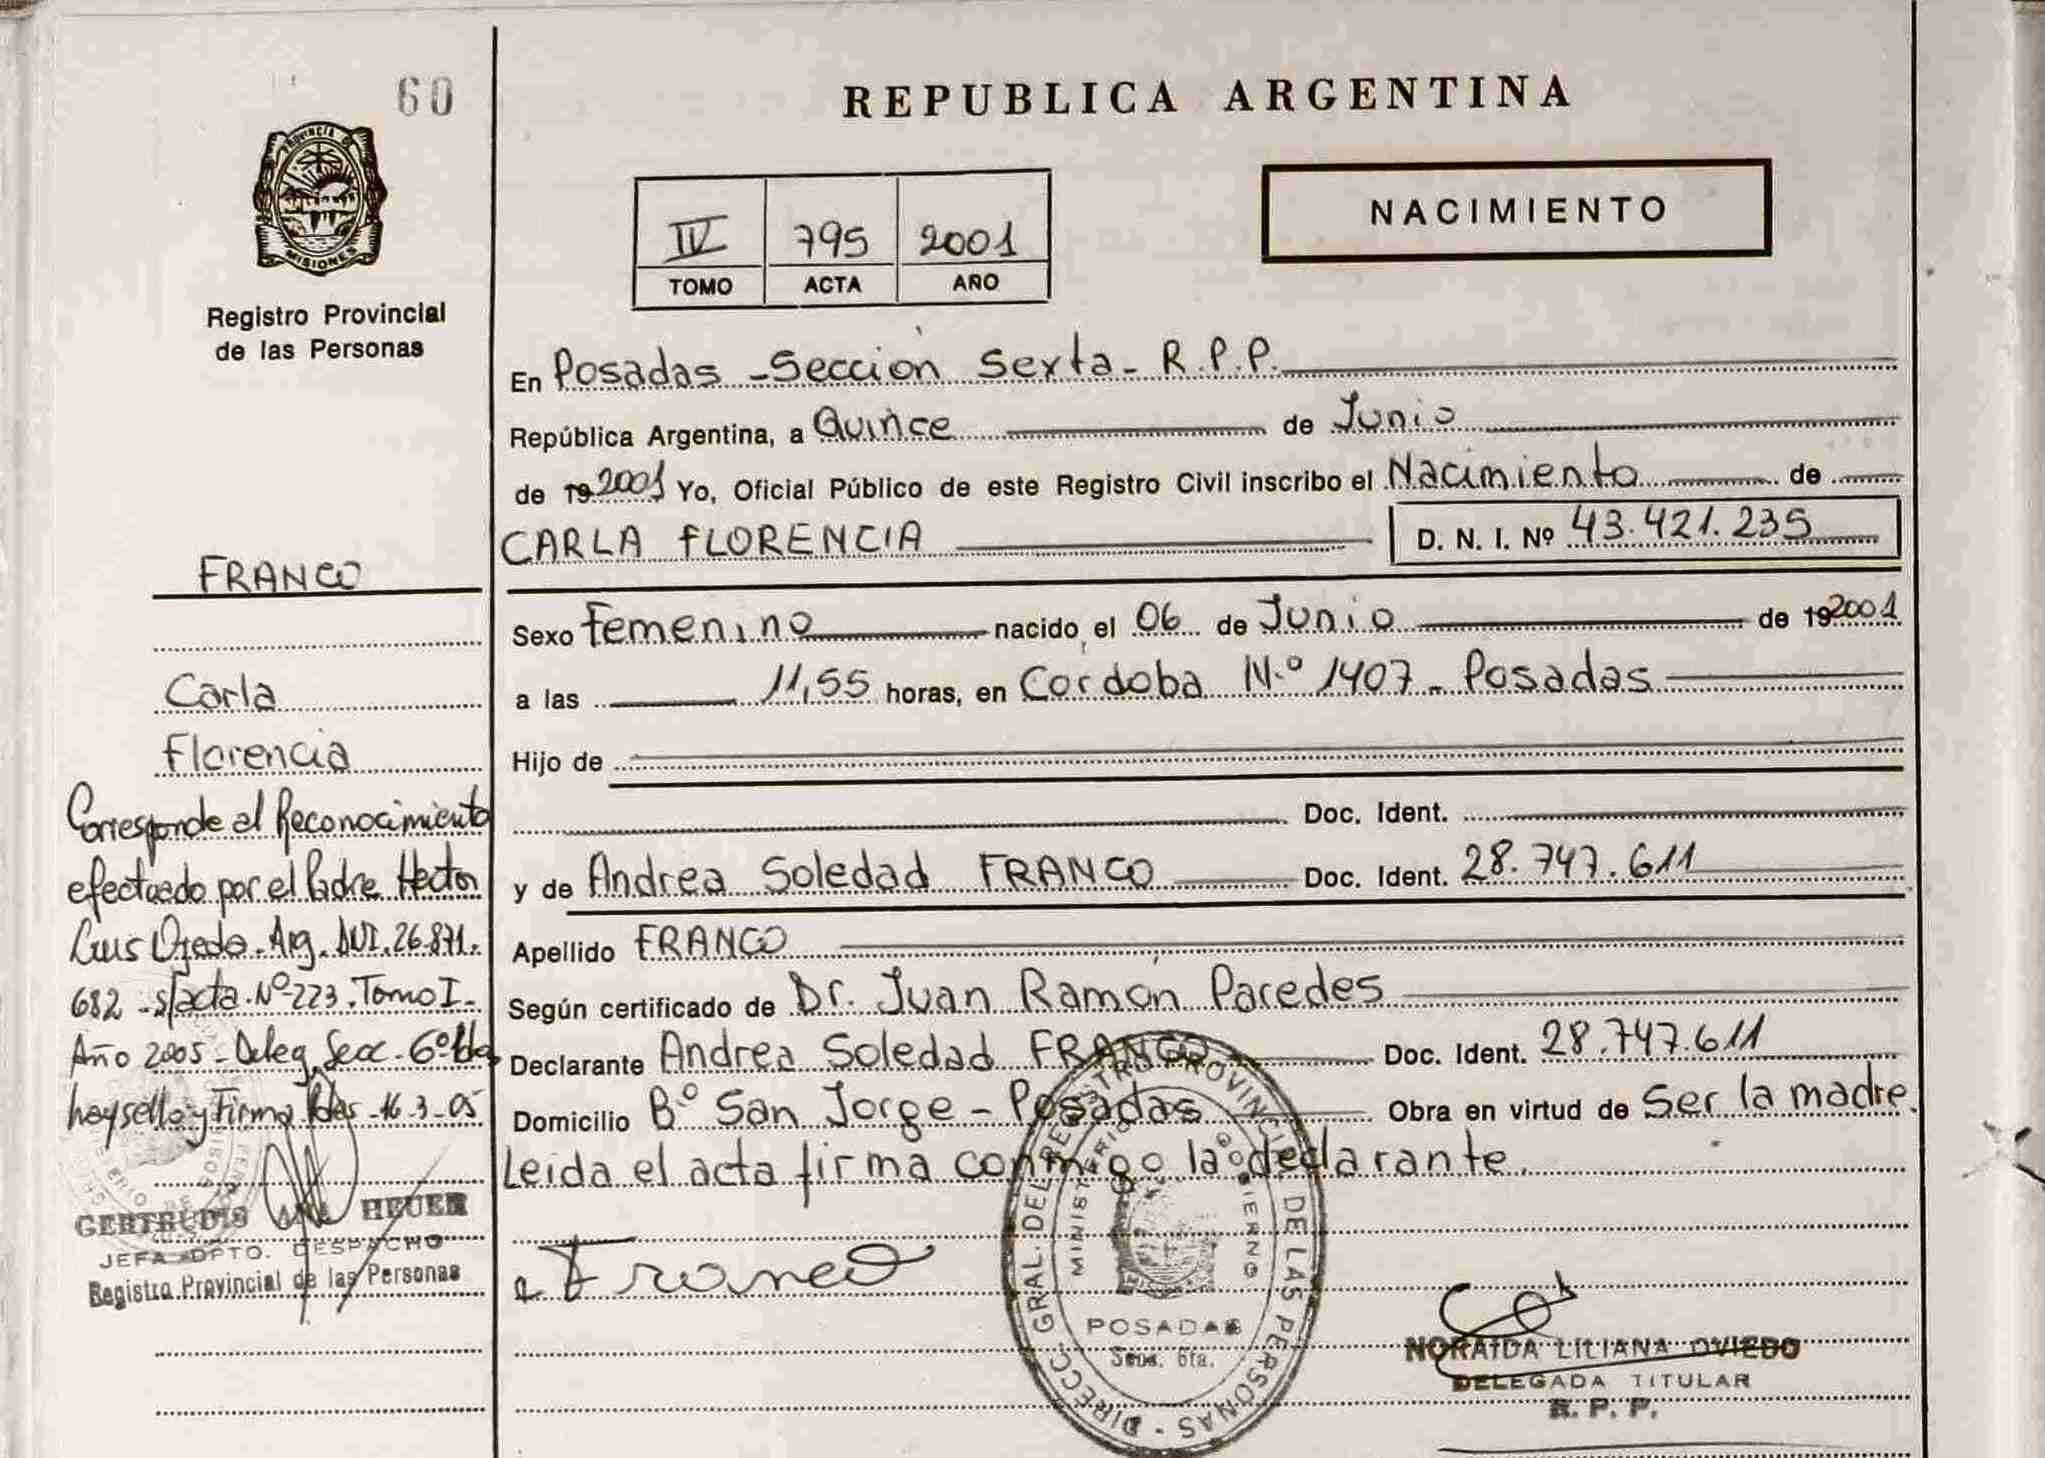 60
PROVINCIA DE
MISIONES
Registro Provincial
de las Personas
FRANCO
Carla
Florencia
Corresponde al Reconocimiento
efectuado por el Padre Hector
Luis Ojeda. Arg. DNI. 26.871.
682 - s/acta. Nº 223. Tomo I.
Año 2005 - Deleg. Secc. 6º
hay sello y Firma Pdas - 16-3-05
GERTRUDIS HEUER
JEFA DPTO. DESPACHO
Registro Provincial de las Personas
REPUBLICA ARGENTINA
IV 795 2001
TOMO ACTA AÑO
NACIMIENTO
En Posadas - Sección Sexta - R.P.P.
República Argentina, a Quince de Junio
de 19 2001 Yo, Oficial Público de este Registro Civil inscribo el Nacimiento de
CARLA FLORENCIA D. N. I. Nº 43.421.235
Sexo Femenino nacido el 06 de Junio de 19 2001
a las 11,55 horas, en Cordoba N.º 1407 - Posadas
Hijo de
Doc. Ident.
y de Andrea Soledad FRANCO Doc. Ident. 28.747.611
Apellido FRANCO
Según certificado de Dr. Juan Ramón Paredes
Declarante Andrea Soledad FRANCO Doc. Ident. 28.747.611
Domicilio Bº San Jorge - Posadas Obra en virtud de Ser la madre.
Leida el acta firma conmigo la declarante.
Franco
DIRECC. GRAL. DEL REGISTRO PROVINCIAL DE LAS PERSONAS
MINISTERIO GOBIERNO
POSADAS
Secc. 6ta.
NORAIDA LILIANA OVIEDO
DELEGADA TITULAR
R. P. P.